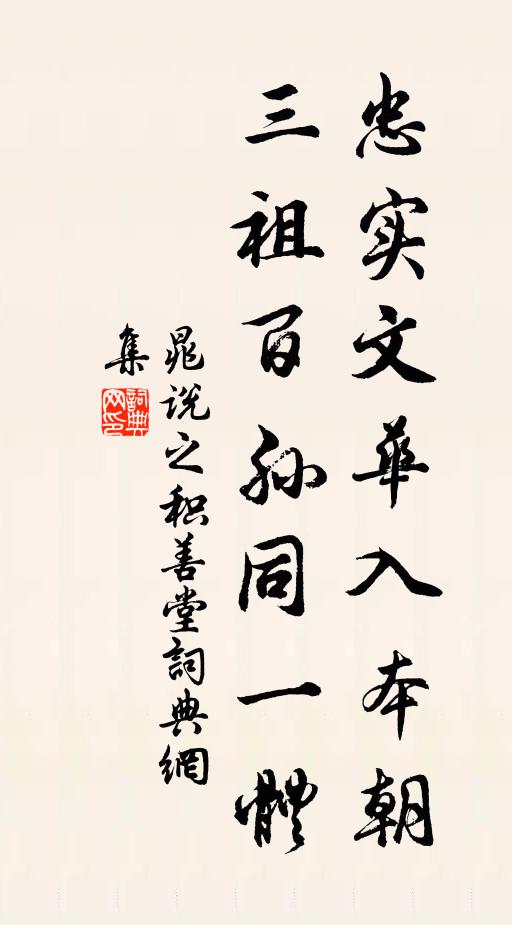 忠实文華入本朝
三祖百孙同一體
晁说之积善堂詞典網
集
詞典网印